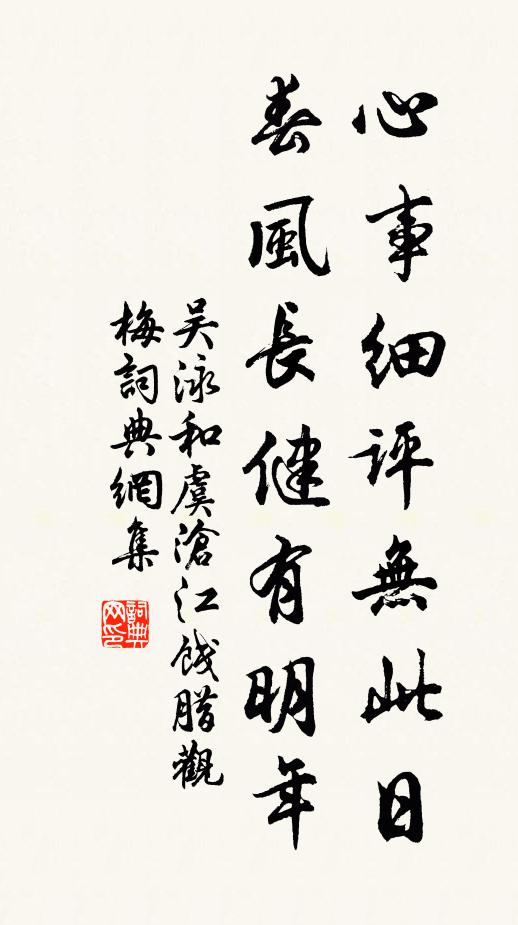 心事細評無此日
春風長健有明年
吴泳和虞滄江餞腊觀
梅詞典網集
詞典网印